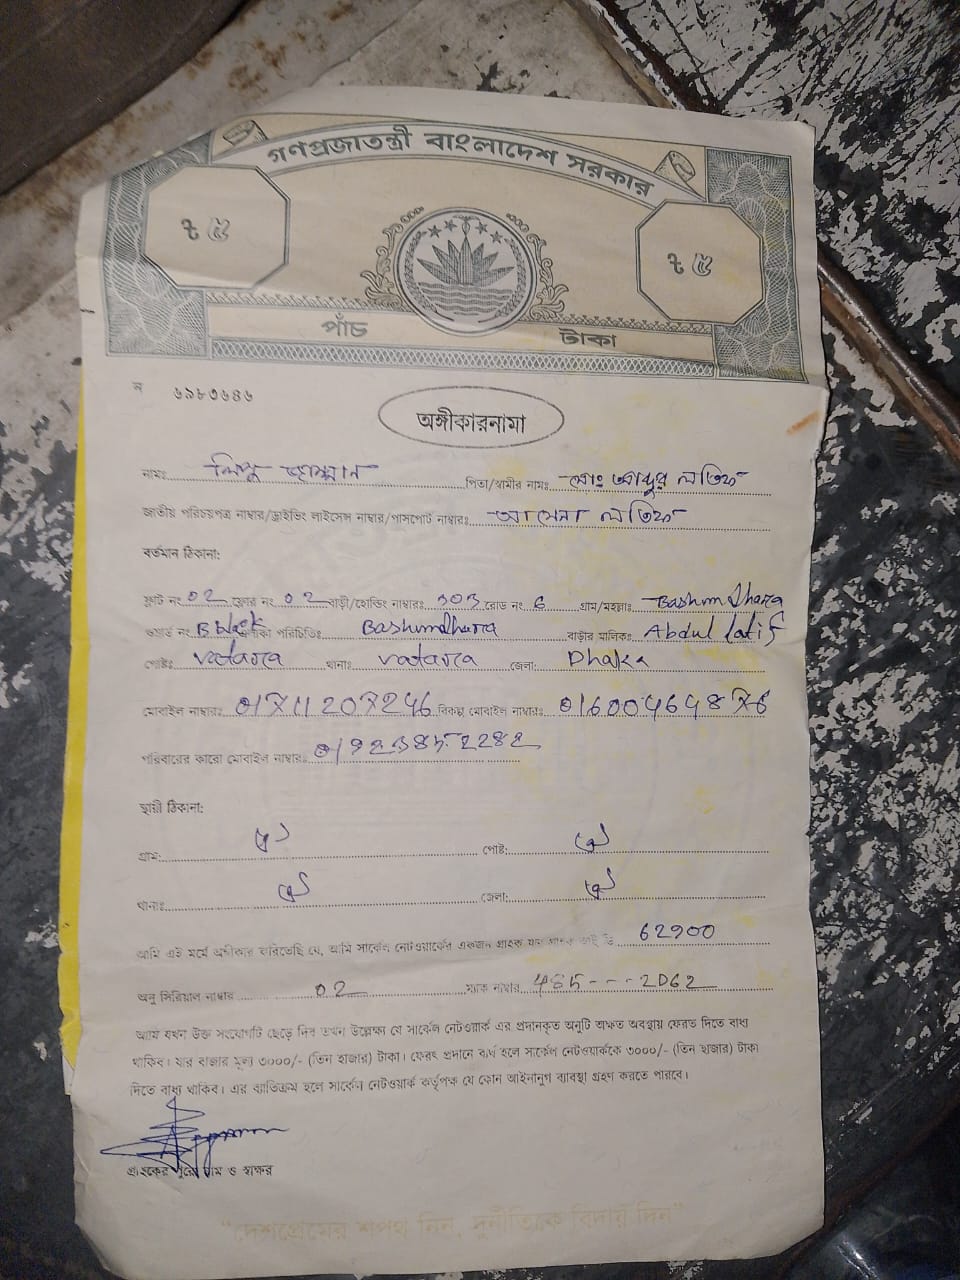 গণপ্রজাতন্ত্রী বাংলাদেশ সরকার
৳ ৫
৳ ৫
পাঁচ টাকা
ন ৬৯৮৩৬৪৬
অঙ্গীকারনামা
নামঃ লিপু পিতা/স্বামীর নামঃ মোঃ আব্দুর লতিফ
জাতীয় পরিচয়পত্র নাম্বার/ড্রাইভিং লাইসেন্স নাম্বার/পাসপোর্ট নাম্বারঃ লতিফ
বর্তমান ঠিকানা:
ফ্লাট নং 02 ফ্লোর নং 02 বাড়ী/হোল্ডিং নাম্বারঃ 303 রোড নং 6 গ্রাম/মহল্লাঃ Bashundhara
ওয়ার্ড নং B block পরিচিতিঃ Bashundhara বাড়ীর মালিকঃ Abdul latif
পোষ্টঃ vatara থানাঃ vatara জেলা: Dhaka
মোবাইল নাম্বারঃ 01711207246 বিকল্প মোবাইল নাম্বারঃ 01600464876
পরিবারের কারো মোবাইল নাম্বারঃ
স্থায়ী ঠিকানা:
গ্রাম: ঐ পোষ্ট: ঐ
থানাঃ ঐ জেলা: ঐ
আমি এই মর্মে অঙ্গীকার করিতেছি যে, আমি সার্কেল নেটওয়ার্কের একজন গ্রাহক যার গ্রাহক আই ডি 62900
অনু সিরিয়াল নাম্বার 02 ম্যাক নাম্বার 485---2D62
আমি যখন উক্ত সংযোগটি ছেড়ে দিব তখন উল্লেক্ষ্য যে সার্কেল নেটওয়ার্ক এর প্রদানকৃত অনুটি অক্ষত অবস্থায় ফেরত দিতে বাধ্য
থাকিব। যার বাজার মূল্য ৩০০০/- (তিন হাজার) টাকা। ফেরৎ প্রদানে ব্যর্থ হলে সার্কেল নেটওয়ার্ককে ৩০০০/- (তিন হাজার) টাকা
দিতে বাধ্য থাকিব। এর ব্যতিক্রম হলে সার্কেল নেটওয়ার্ক কর্তৃপক্ষ যে কোন আইনানুগ ব্যবস্থা গ্রহণ করতে পারবে।
গ্রাহকের পুরো নাম ও স্বাক্ষর
"দেশপ্রেমের শপথ নিন, দুর্নীতিকে বিদায় দিন"